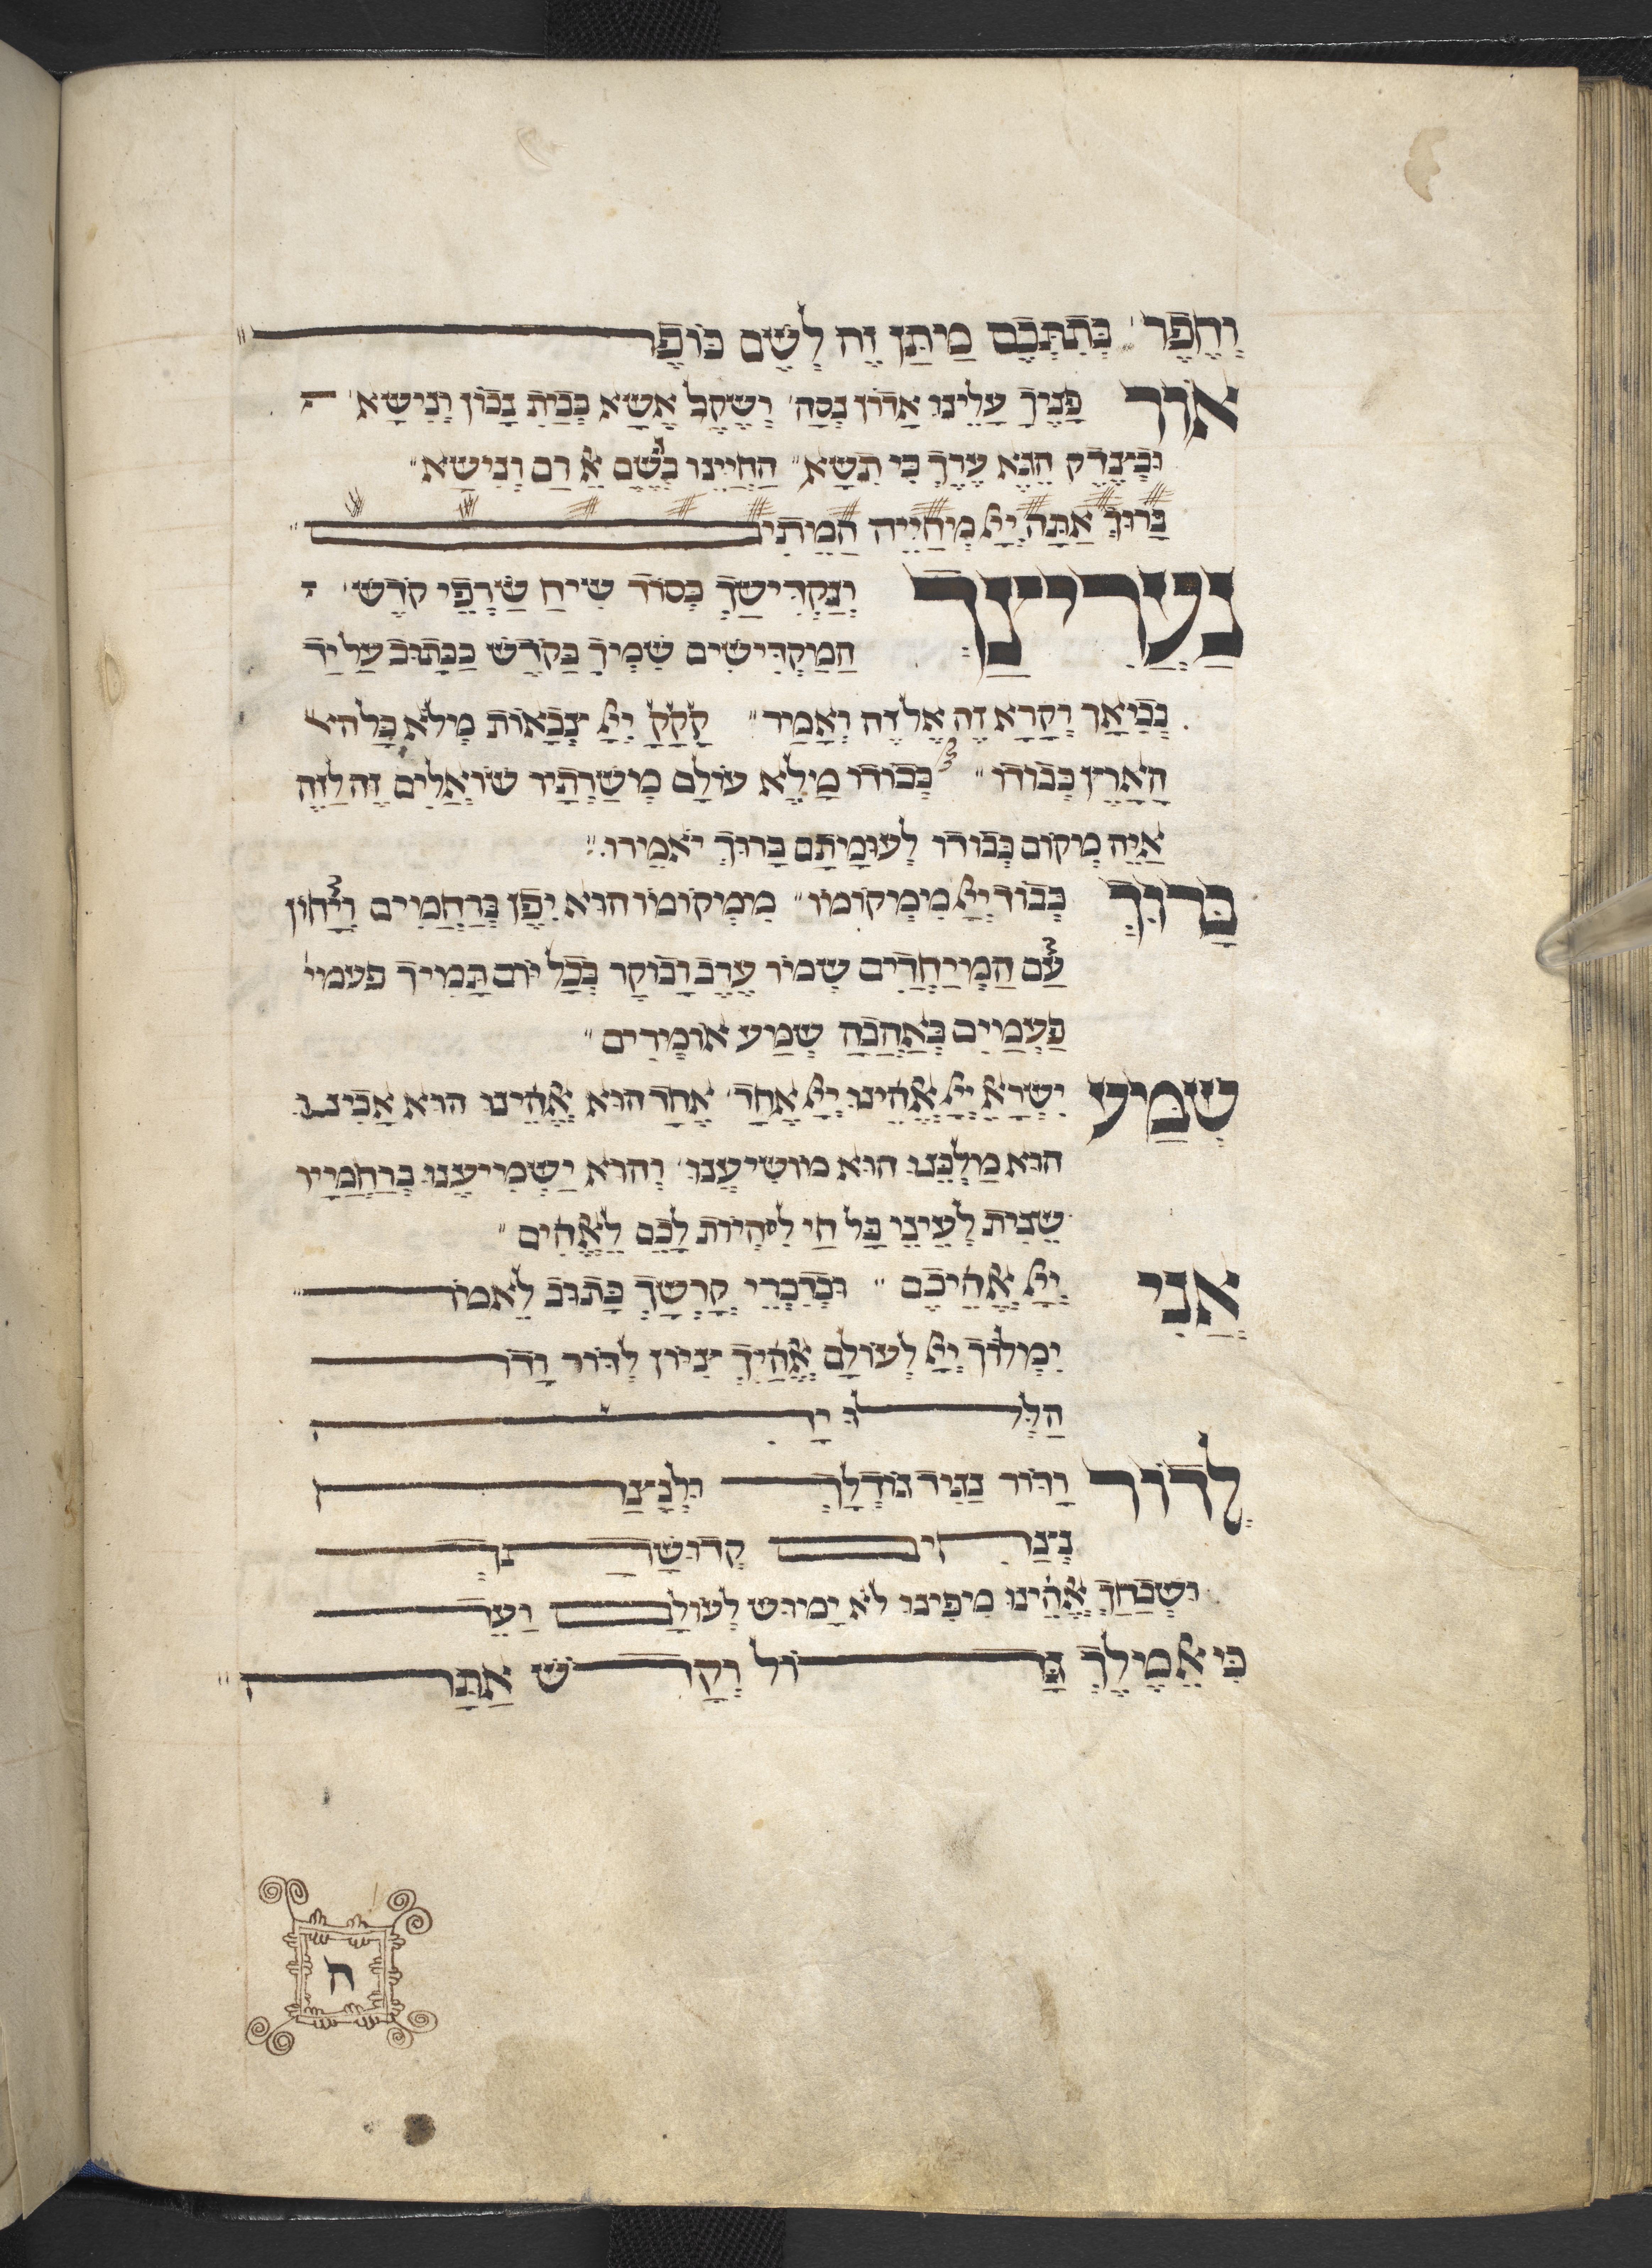 וְחֶפֶר׳ כְּתִתְּכֶם מַתַּן זֶה לְשֵׁם כּוֹפֶר
אוֹר פָּנֶיךָ עָלֵינוּ אָדוֹן נְסָה׳ וְשֶׁקֶל אֶשָּׂא בְּבַיִת נָכוֹן וְנִישָּׂא׳
וּבְצֶדֶק הֶגֶא עֶרֶךְ כִּי תִשָּׂא״ הַחֲיֵינוּ בְּשֵׁם אֵל רַם וְנִישָּׂא״
בָּרוּךְ אַתָּה יְיָ מְחַיֵּיה הַמֵּתִים״
נַעֲרִיצָךְ וְנַקְדִּישָׁךְ בְּסוֹד שִׂיחַ שַׂרְפֵי קֹדֶשׁ׳
הַמַקְדִּישִׁים שִׁמְךָ בַּקֹּדֶשׁ כַּכָּתוּב עַל יַד
נְבִיאָךְ וְקָרָא זֶה אֶל זֶה וְאָמַר״ קָקָקָ יְיָ צְבָאוֹת מְלֹא כָל הא׳
הָאָרֶץ כְּבוֹדוֹ״ כְּבוֹדוֹ מָלֵא עוֹלָם מְשָׁרְתָיו שׁוֹאֲלִים זֶה לָזֶה
אַיֵּה מְקוֹם כְּבוֹדוֹ לְעוּמָתָם בָּרוּךְ יֹאמֵרוּ״
בָּרוּךְ כְּבוֹד יְיָ מִמְּקוֹמוֹ״ מִמְּקוֹמוֹ הוּא יִפֶן בְּרַחֲמִים וְיָחוֹן
עַם הַמְיַיחֲדִים שְׁמוֹ עֶרֶב וָבוֹקֶר בְּכָל יוֹם תָּמִיד פעמי׳
פַּעֲמַיִם בְּאַהֲבָה שְׁמַע אוֹמְרִים״
שְׁמַע יִשְׂרָאֵל יְיָ אֱלֹהֵינוּ יְיָ אֶחָד׳ אֶחָד הוּא אֱלֹהֵינוּ הוּא אָבִינוּ
הוּא מַלְכֵּנוּ הוּא מוֹשִׁיעֵנוּ׳ וְהוּא יַשְׁמִיעֵנוּ בְּרַחֲמָיו
שֵׁנִית לְעֵינֵי כָּל חַי לִהְיוֹת לָכֶם לֵאלֹהִים״
אֲנִי יְיָ אֱלֹהֵיכֶם״ וּבְדִבְרֵי קָדְשָׁךְ כָּתוּב לֵאמֹר״
יִמְלוֹךְ יְיָ לְעוֹלָם אֱלֹהַיִךְ צִיּוֹן לְדוֹר וָדֹר
הַלְלוּיָהּ
לְדוֹר וָדוֹר נַגִּיד גּוֹדְלָךְ וּלְנֵצַח
נְצָחִים קְדוּשָּׁתְךָ
וְשִׁבְחֲךָ אֱלֹהֵינוּ מִפִּינוּ לֹא יָמוּשׁ לְעוֹלָם וָעֶד
כִּי אֵל מֶלֶךְ גָּדוֹל וְקָדוֹשׁ אַתָּה״
ח